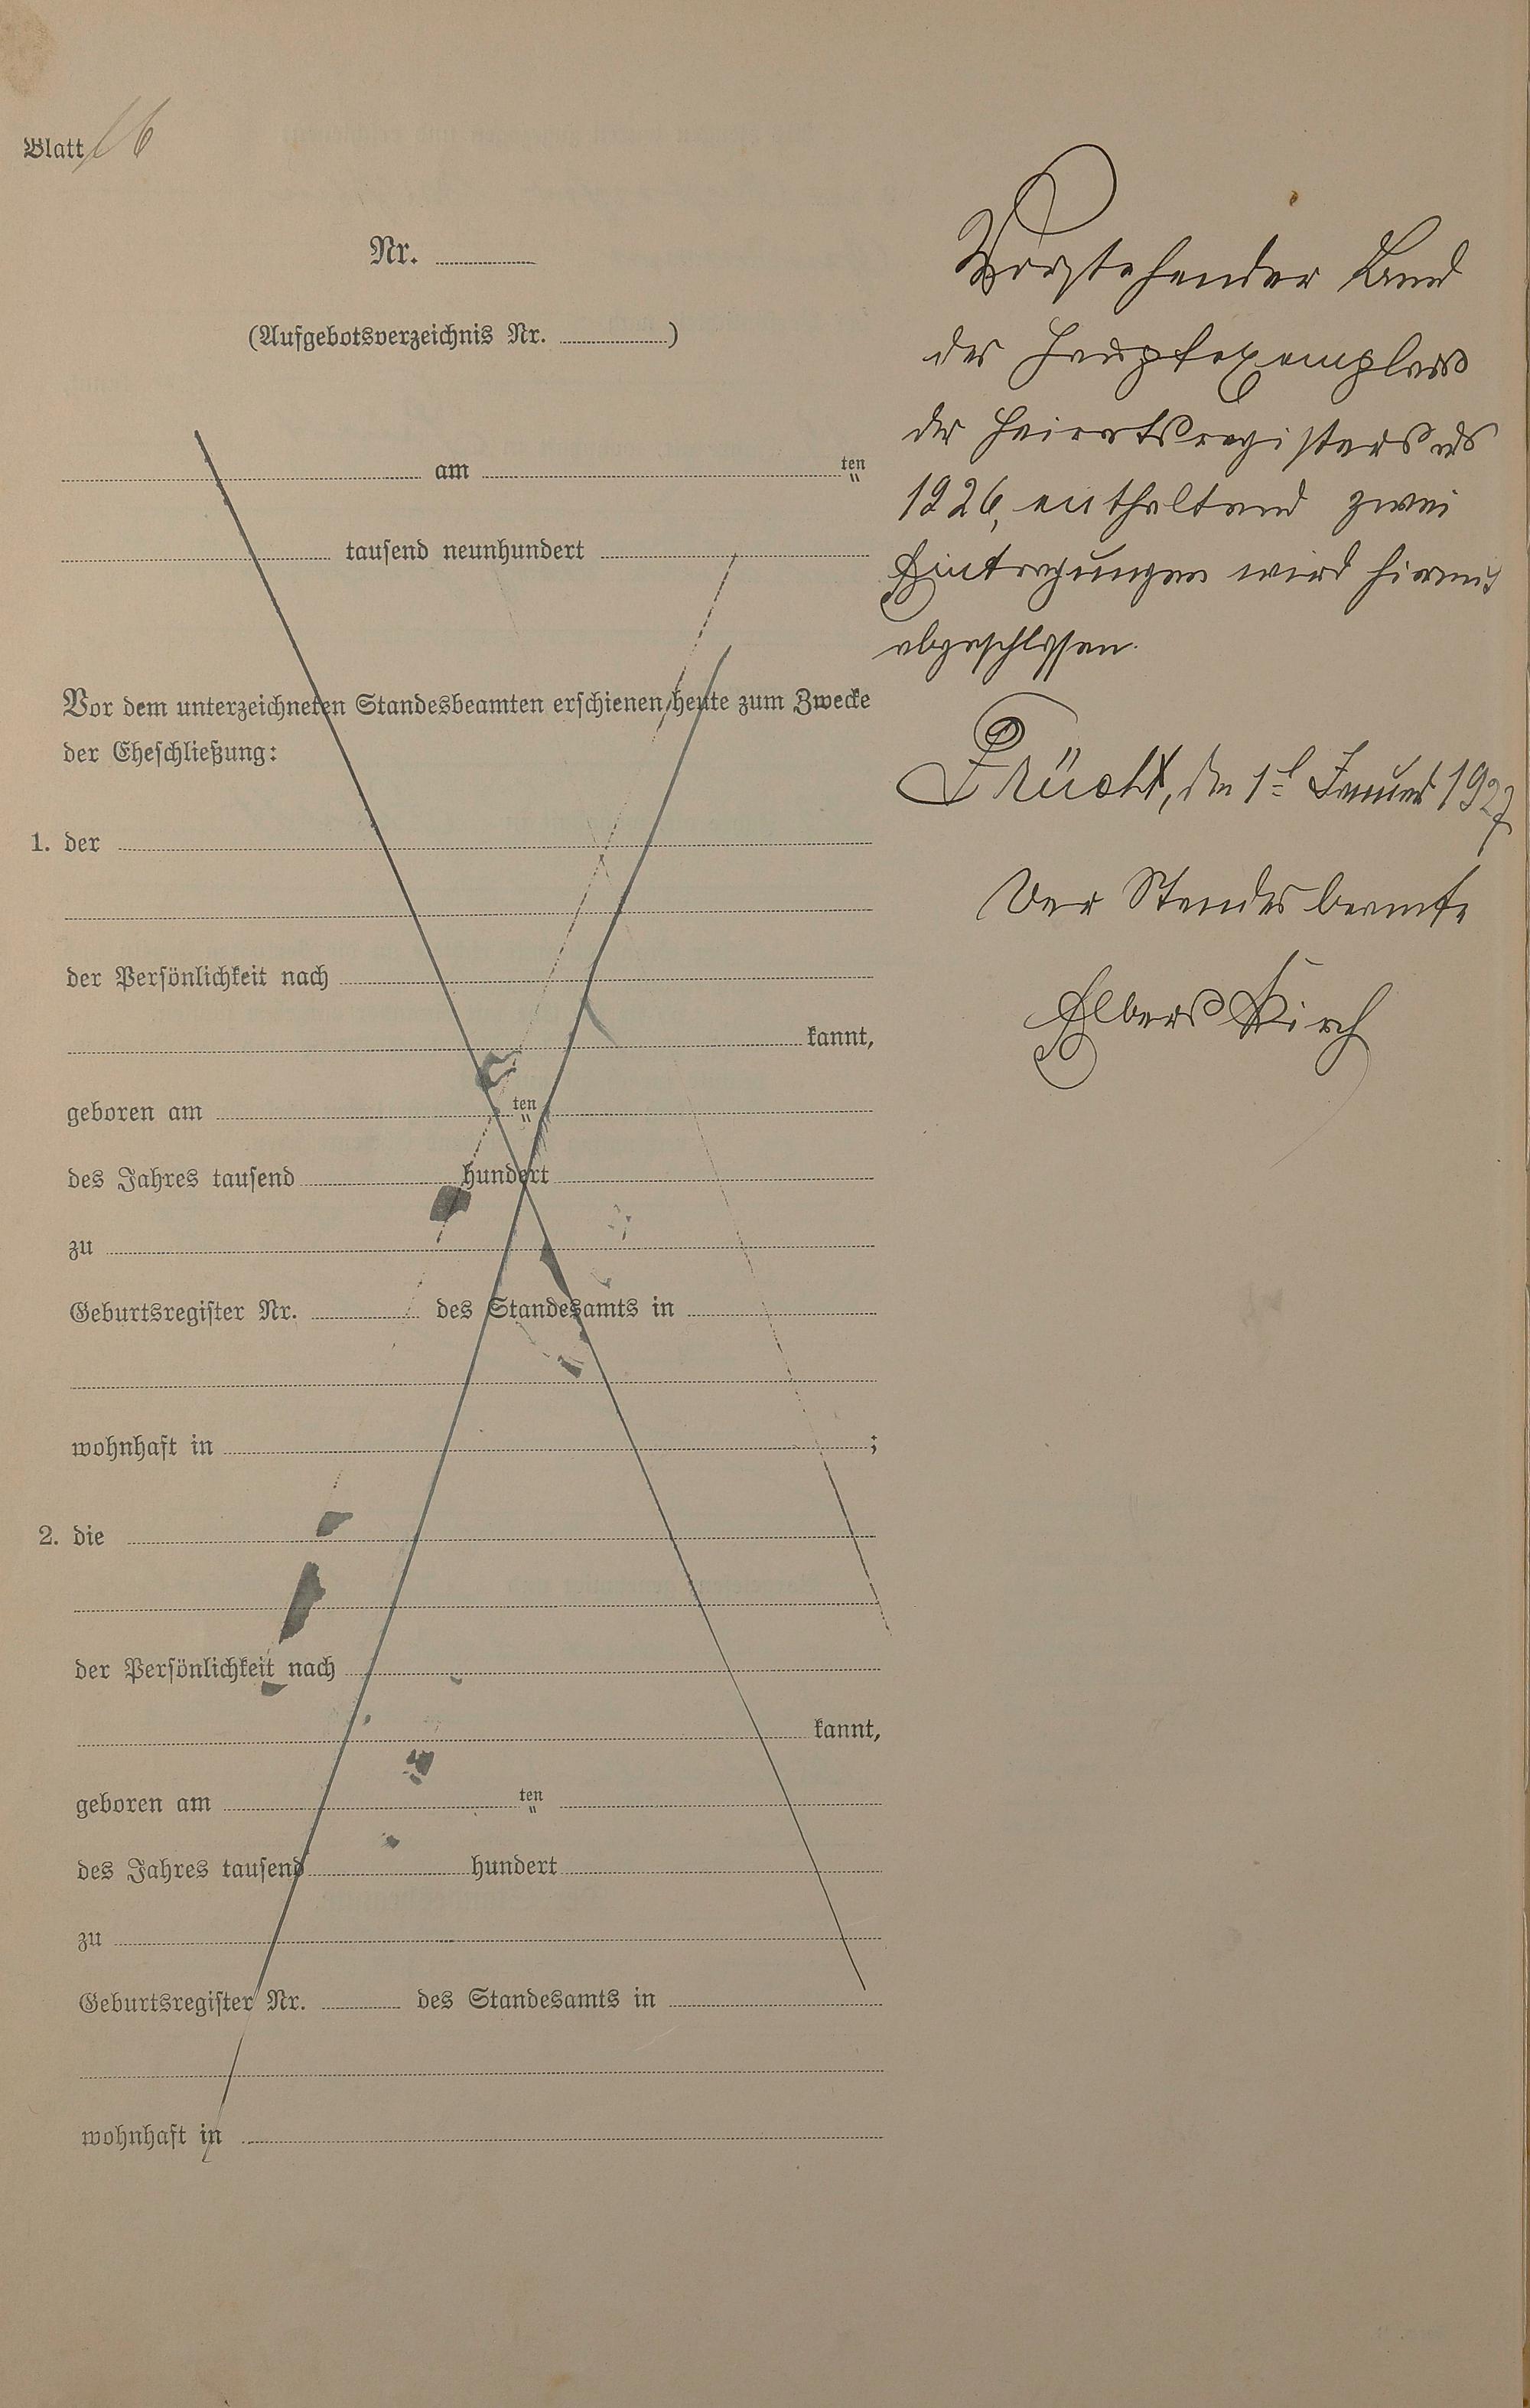 Blatt 16
Nr.
(Aufgebotsverzeichnis Nr. )
am ten
tausend neunhundert
Vor dem unterzeichneten Standesbeamten erschienen heute zum Zwecke
der Eheschließung:
1. der
der Persönlichkeit nach
kannt,
geboren am ten
des Jahres tausend hundert
zu
Geburtsregister Nr. des Standesamts in
wohnhaft in ;
2. die
der Persönlichkeit nach
kannt,
geboren am ten
des Jahres tausend hundert
zu
Geburtsregister Nr. des Standesamts in
wohnhaft in
Vorstehender Band
des Hauptexemplars
des Heiratsregisters
1926, enthaltend zwei
Eintragungen wird hiermit
abgeschlossen.
Frücht, den 1t Januar 1927
Der Standesbeamte